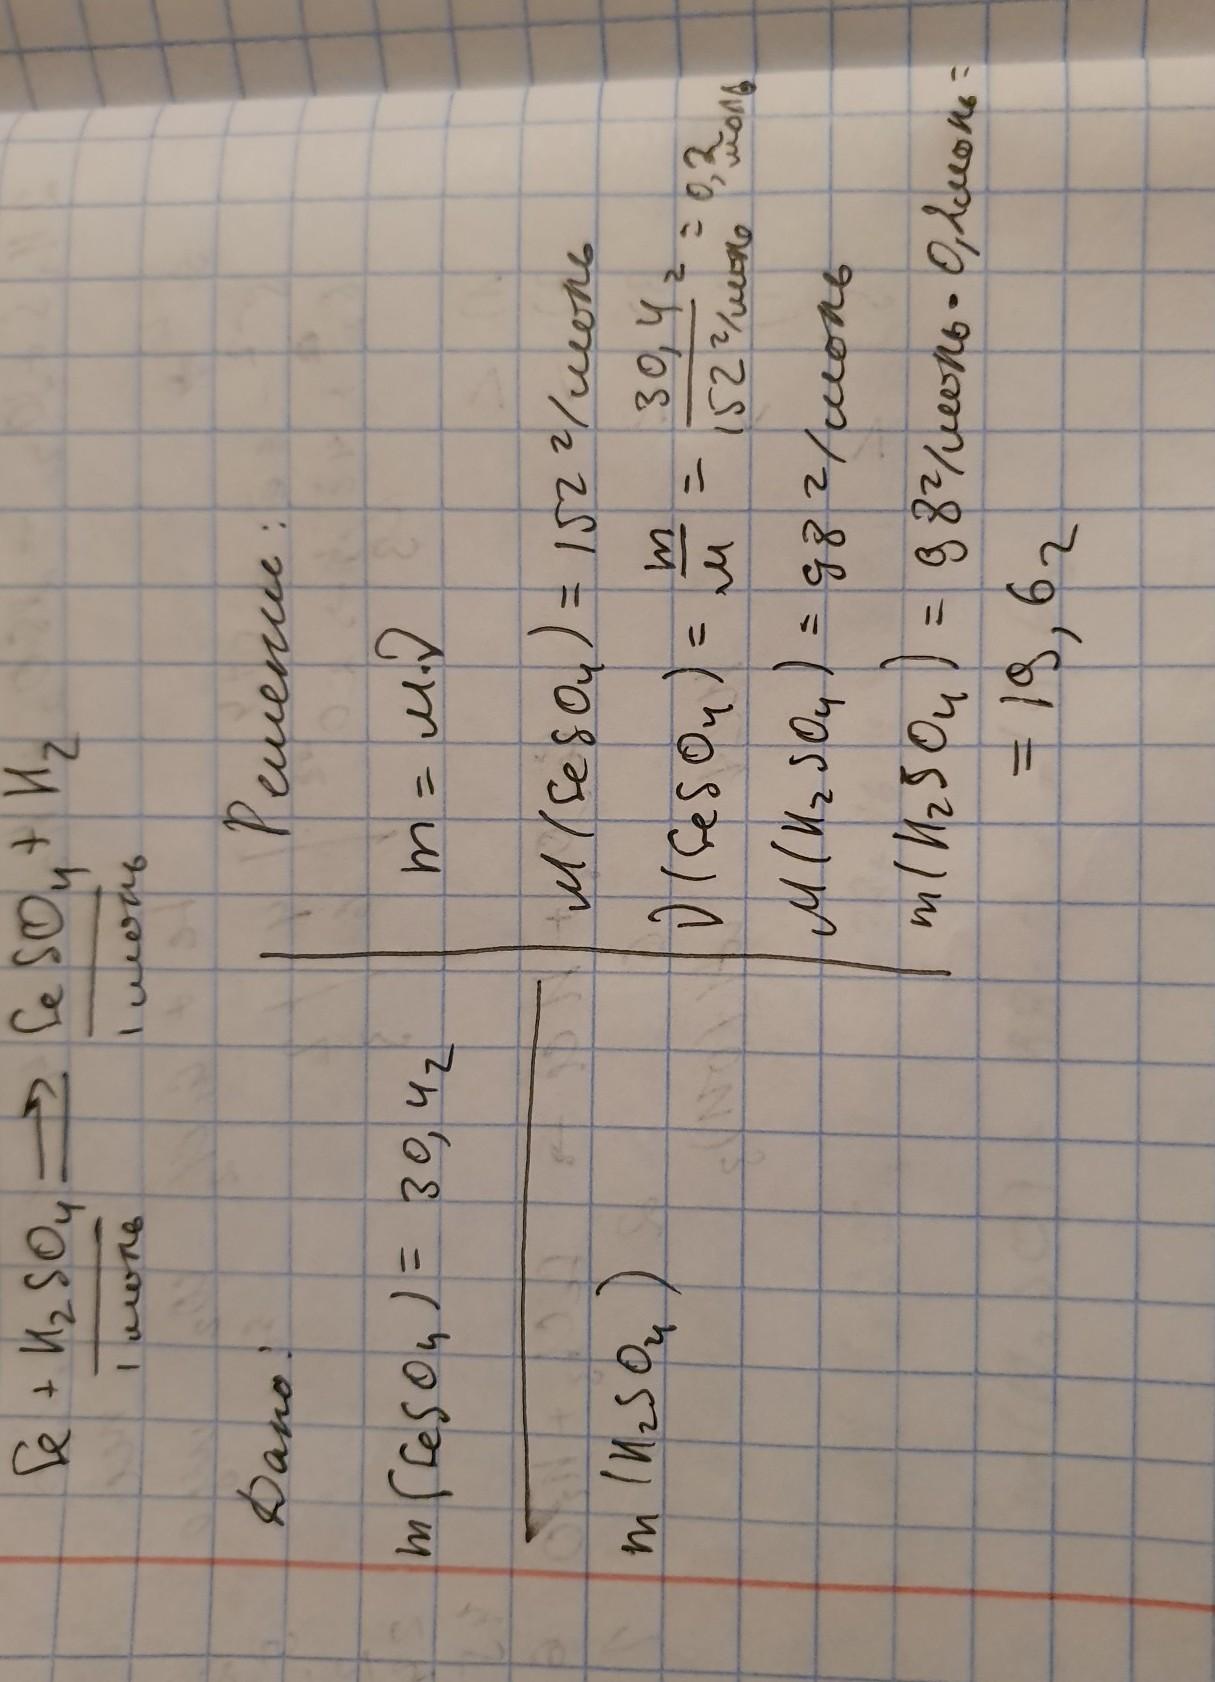 Fe + H₂SO₄ ⟶ FeSO₄ + H₂
1 моль 1 моль
Дано:
m(FeSO₄) = 30,4 г
m(H₂SO₄)
Решение:
m = M·ν
M(FeSO₄) = 152 г/моль
ν(FeSO₄) = m/M = 30,4 г/152 г/моль = 0,2 моль
M(H₂SO₄) = 98 г/моль
m(H₂SO₄) = 98 г/моль · 0,2 моль =
= 19,6 г